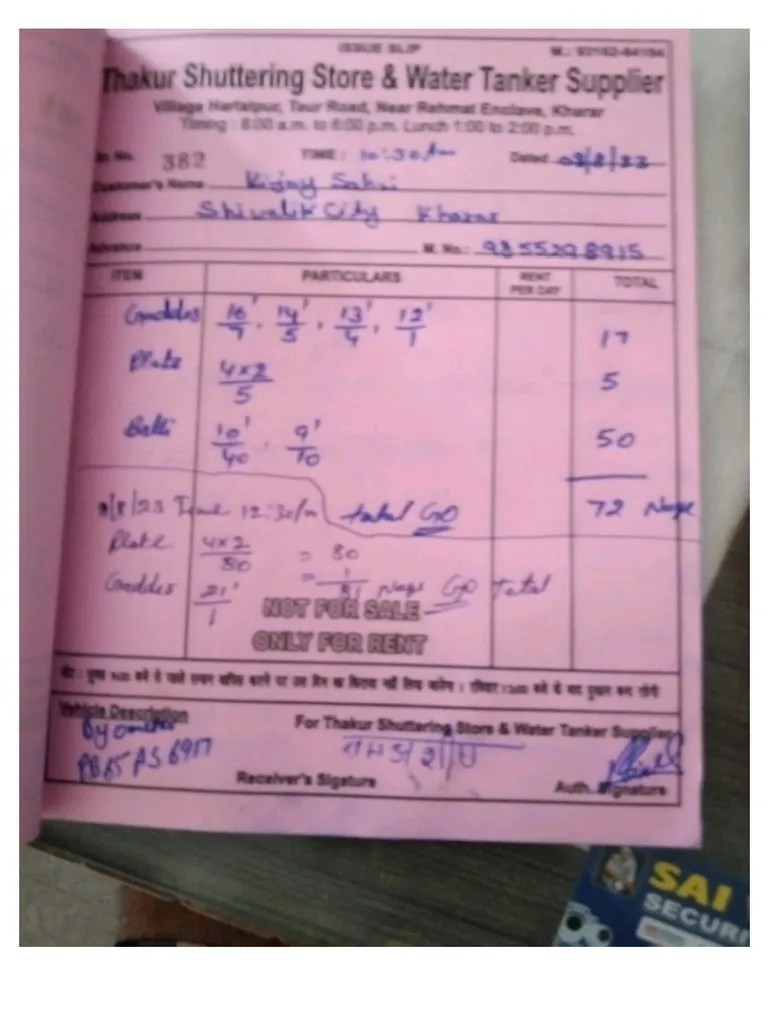 ISSUE SLIP M.: 93162-64194
Thakur Shuttering Store & Water Tanker Supplier
Village Harlalpur, Teur Road, Near Rahmat Enclave, Kharar
Timing : 8:00 a.m. to 6:00 p.m. Lunch 1:00 to 2:00 p.m.
Sr. No. 382 TIME : 10:30 Am Dated 03/8/23
Customer's Name Vijay Sahni
Address Shivalik City Kharar
Advance M. No.: 9855298915
ITEM PARTICULARS RENT PER DAY TOTAL
Gadder 16'/7, 14'/5, 13'/4, 12'/1 17
Plate 4x2/5 5
Balli 10'/40, 9'/10 50
3/8/23 Time 12:30 Pm total GO 72 Nags
Plate 4x2/80 = 80
Gadder 21'/1 = 1
81 Nags GO Total
NOT FOR SALE
ONLY FOR RENT
Vehicle Description For Thakur Shuttering Store & Water Tanker Supplier
PB65 AS 6917
Receiver's Sigature Auth. Signature
SAI
SECURI